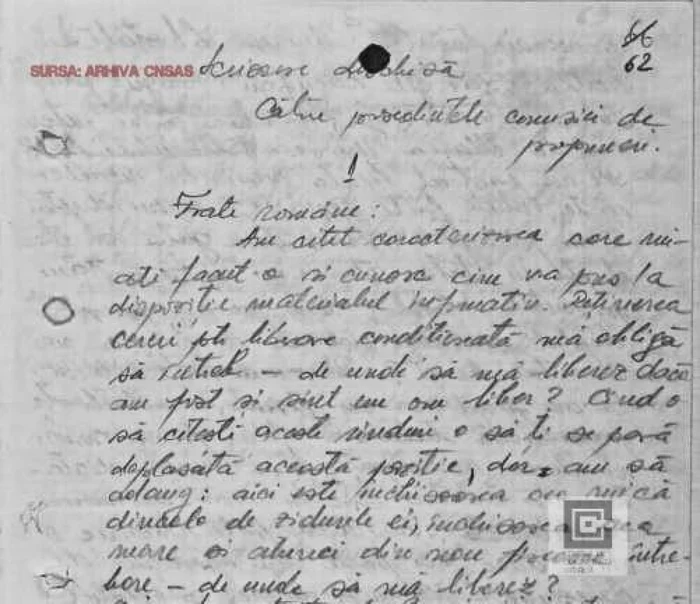 66
62
SURSA: ARHIVA CNSAS Scrisoare deschisă
Către președintele comisiei de
propuneri.
1
Frate române:
Am citit caracterizarea care mi-
ați facut-o si cunosc cine v-a pus la
dispozitie materialul informativ. Retinerea
cererii ptr liberare conditionată mă obligă
să intreb – de unde să mă liberez dacă
am fost si sint un om liber? Cind o
să citesti aceste rinduri o să ti se pară
deplasată această pozitie, dar, am să
adaug: aici este inchisoarea cea mică
dincolo de zidurile ei, inchisoarea cea
mare si atunci din nou intre-
bare – de unde să mă liberez?